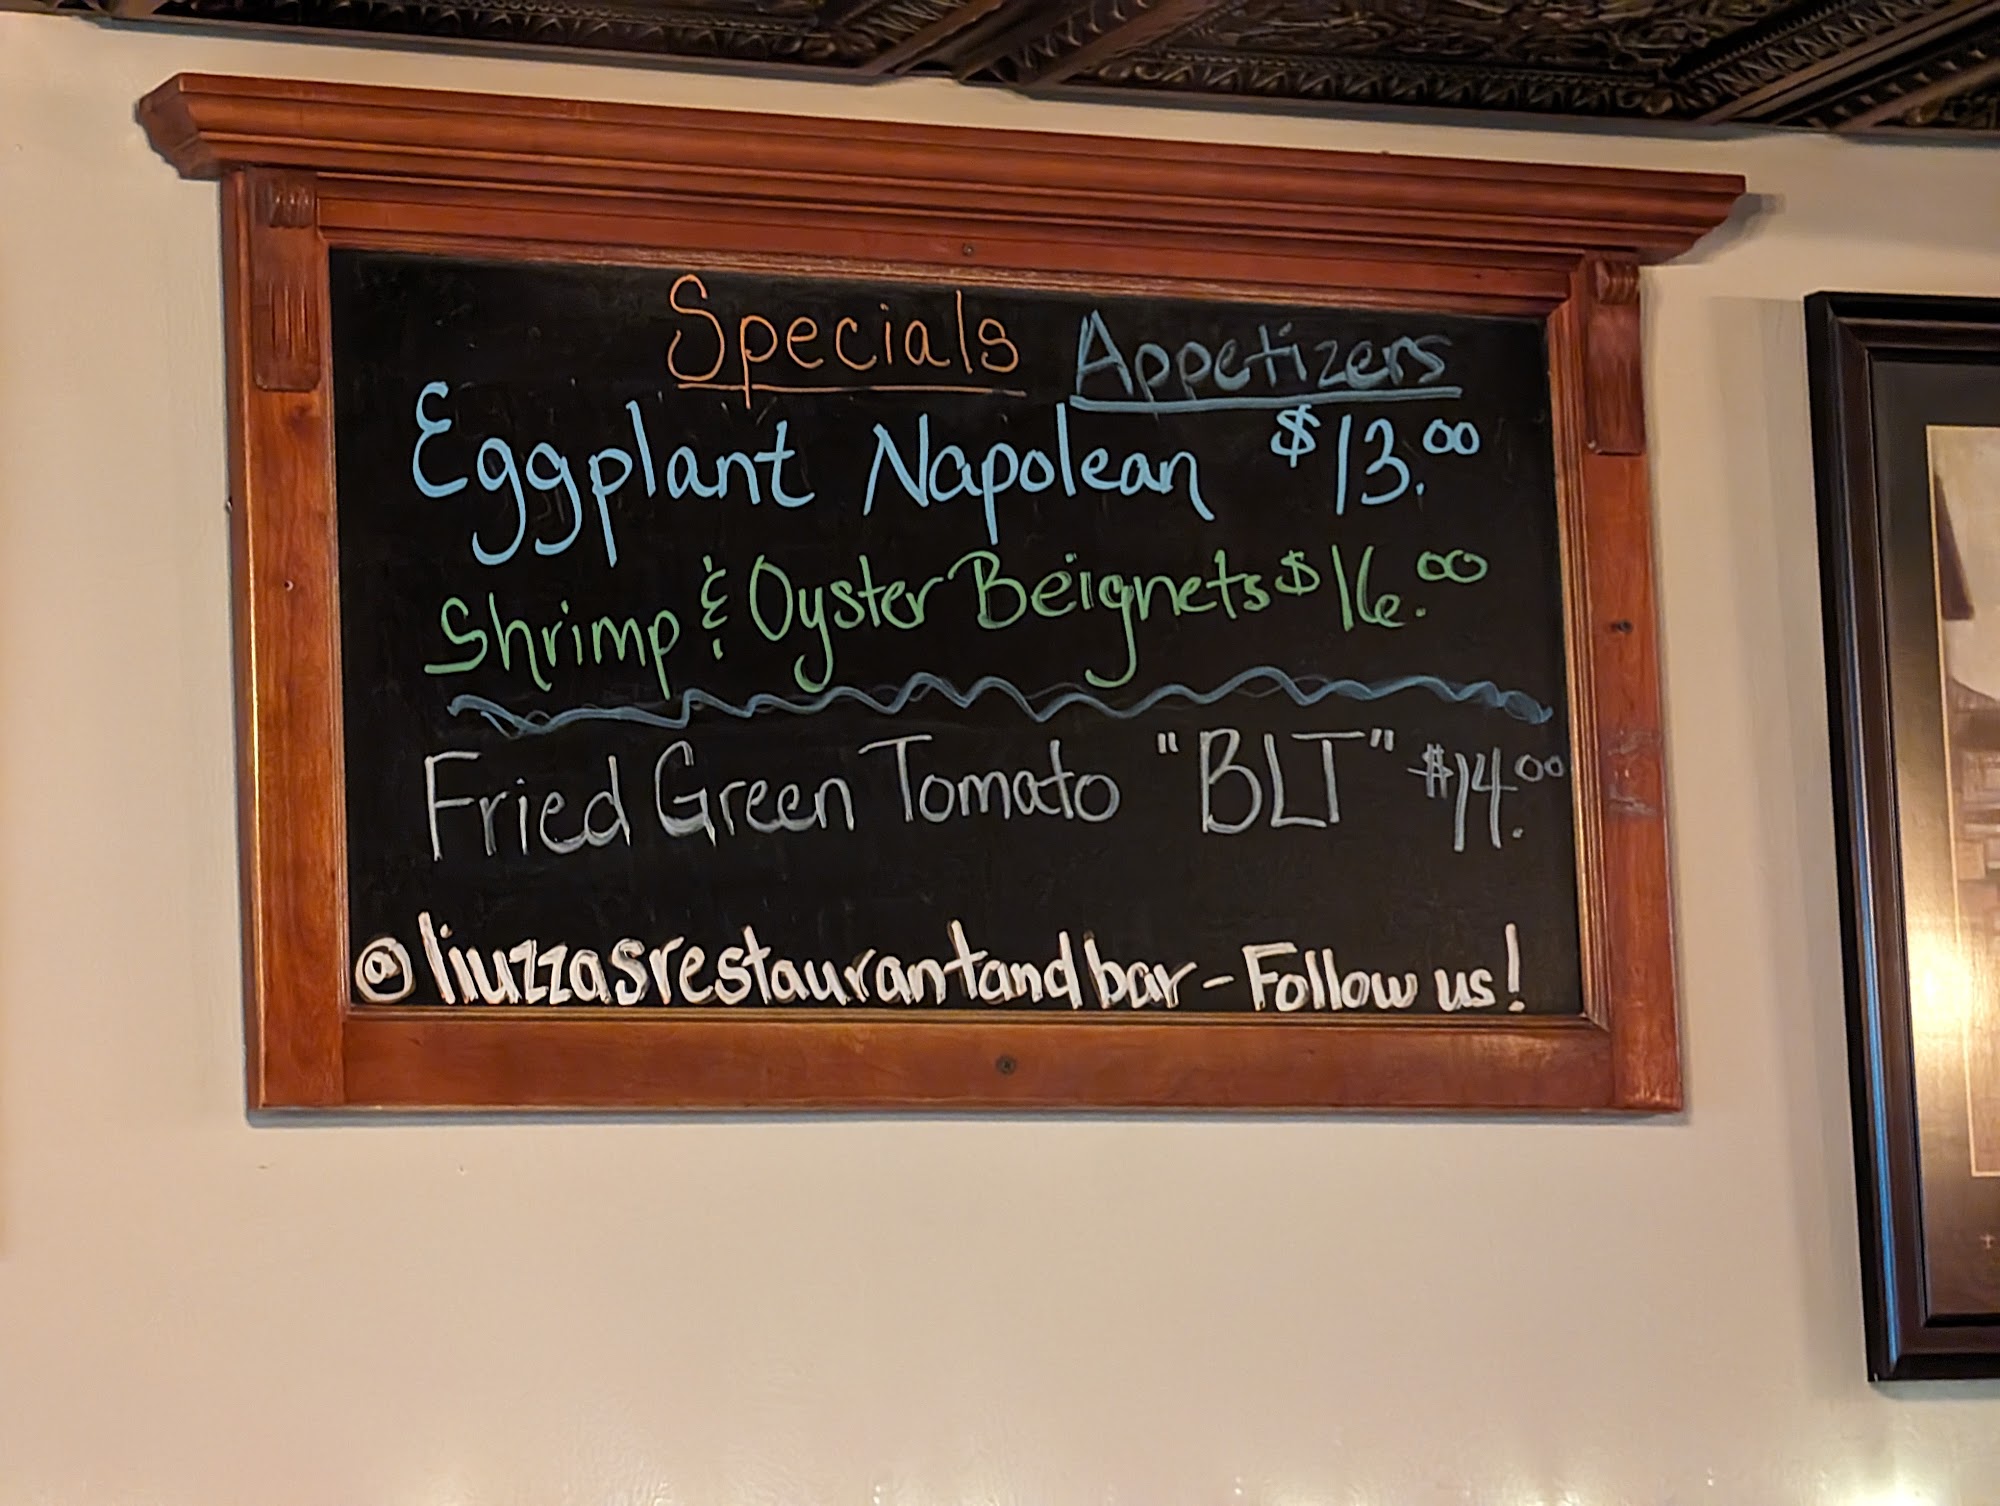 Specials Appetizers
Eggplant Napolean $13.00
Shrimp & Oyster Beignets $16.00
Fried Green Tomato "BLT" $14.00
@liuzzasrestaurantandbar - Follow us!